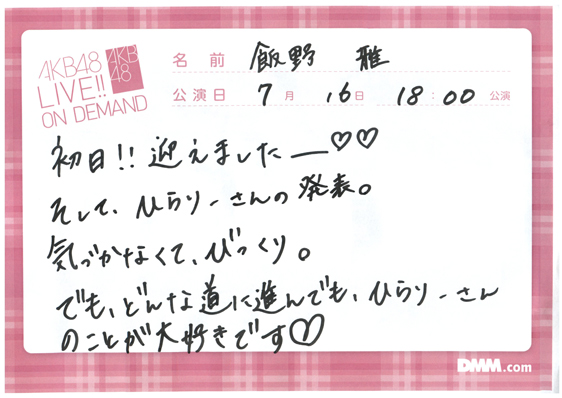 AKB48
LIVE!!
ON DEMAND
AKB
48
名 前 飯野 雅
公演日 7月 16日 18:00 公演
初日!! 迎えました—♡♡
そして、ひらりーさんの発表。
気づかなくて、びっくり。
でも、どんな道に進んでも、ひらりーさん
のことが大好きです♡
DMM.com